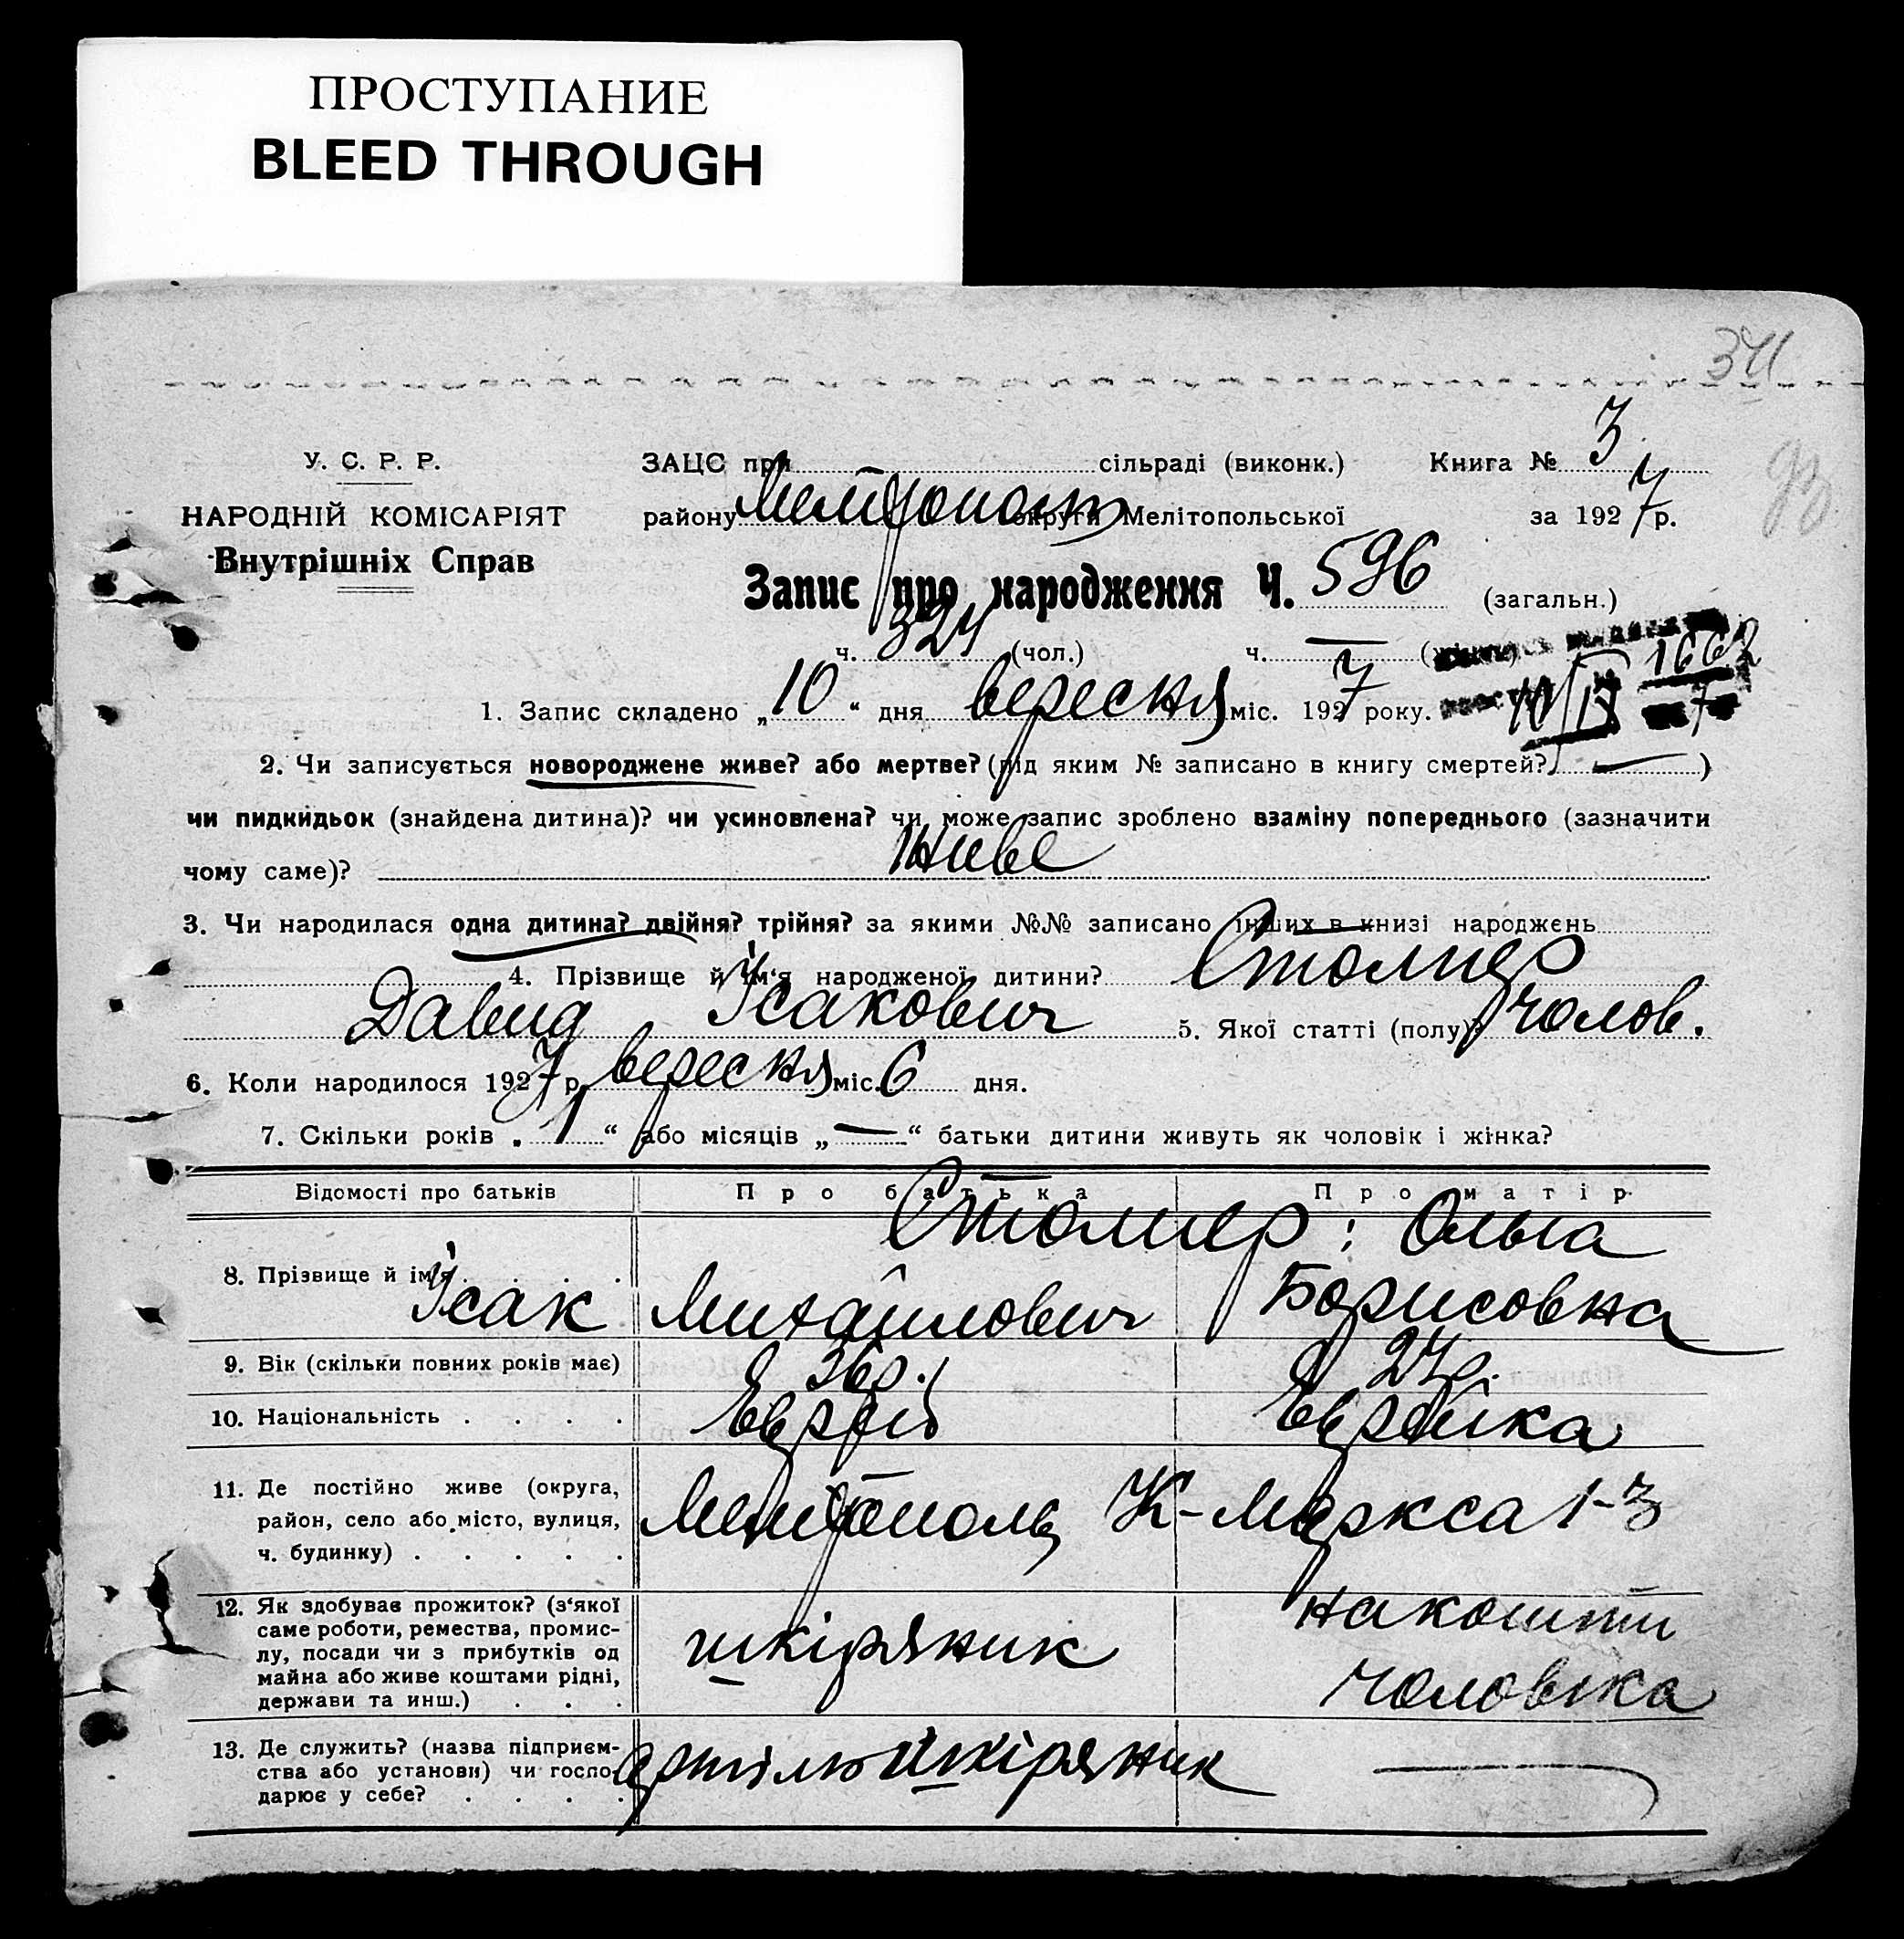 ПРОСТУПАНИЕ
BLEED THROUGH
У. С. Р. Р.
НАРОДНІЙ КОМІСАРІЯТ
Внутрішніх Справ
ЗАЦС при сільраді (виконк.) Книга № 3
району Мелітополь округи Мелітопольської за 1927 р.
Запис про народження Ч. 596 (загальн.)
ч. 324 (чол.) ч. —
1. Запис складено „10“ дня вересня міс. 1927 року.
2. Чи записується новороджене живе? або мертве? (під яким № записано в книгу смертей? — )
чи пидкидьок (знайдена дитина)? чи усиновлена? чи може запис зроблено взаміну попереднього (зазначити
чому саме)? Живе
3. Чи народилася одна дитина? двійня? трійня? за якими №№ записано інших в книзі народжень —
4. Прізвище й ім‘я народженої дитини? Столпер
Давид Ісакович 5. Якої статті (полу)? чолов.
6. Коли народилося 1927 р. вересня міс. 6 дня.
7. Скільки років „1“ або місяців „—“ батьки дитини живуть як чоловік і жінка?
Відомості про батьків Про батька Про матір
Столпер: Ольга
8. Прізвище й ім‘я . . . . Ісак Михайлович Борисовна
9. Вік (скільки повних років має) 36р. 27р.
10. Національність . . . . Еврей Еврейка
11. Де постійно живе (округа,
район, село або місто, вулиця,
ч. будинку) . . . . . Мелітополь К-Маркса 1-3
12. Як здобуває прожиток? (з‘якої
саме роботи, ремества, промис-
лу, посади чи з прибутків од
майна або живе коштами рідні,
держави та инш.) . . . шкіряник на кошти
чоловіка
13. Де служить? (назва підприєм-
ства або установи) чи госпо-
дарює у себе? . . . . артілю шкіряник —